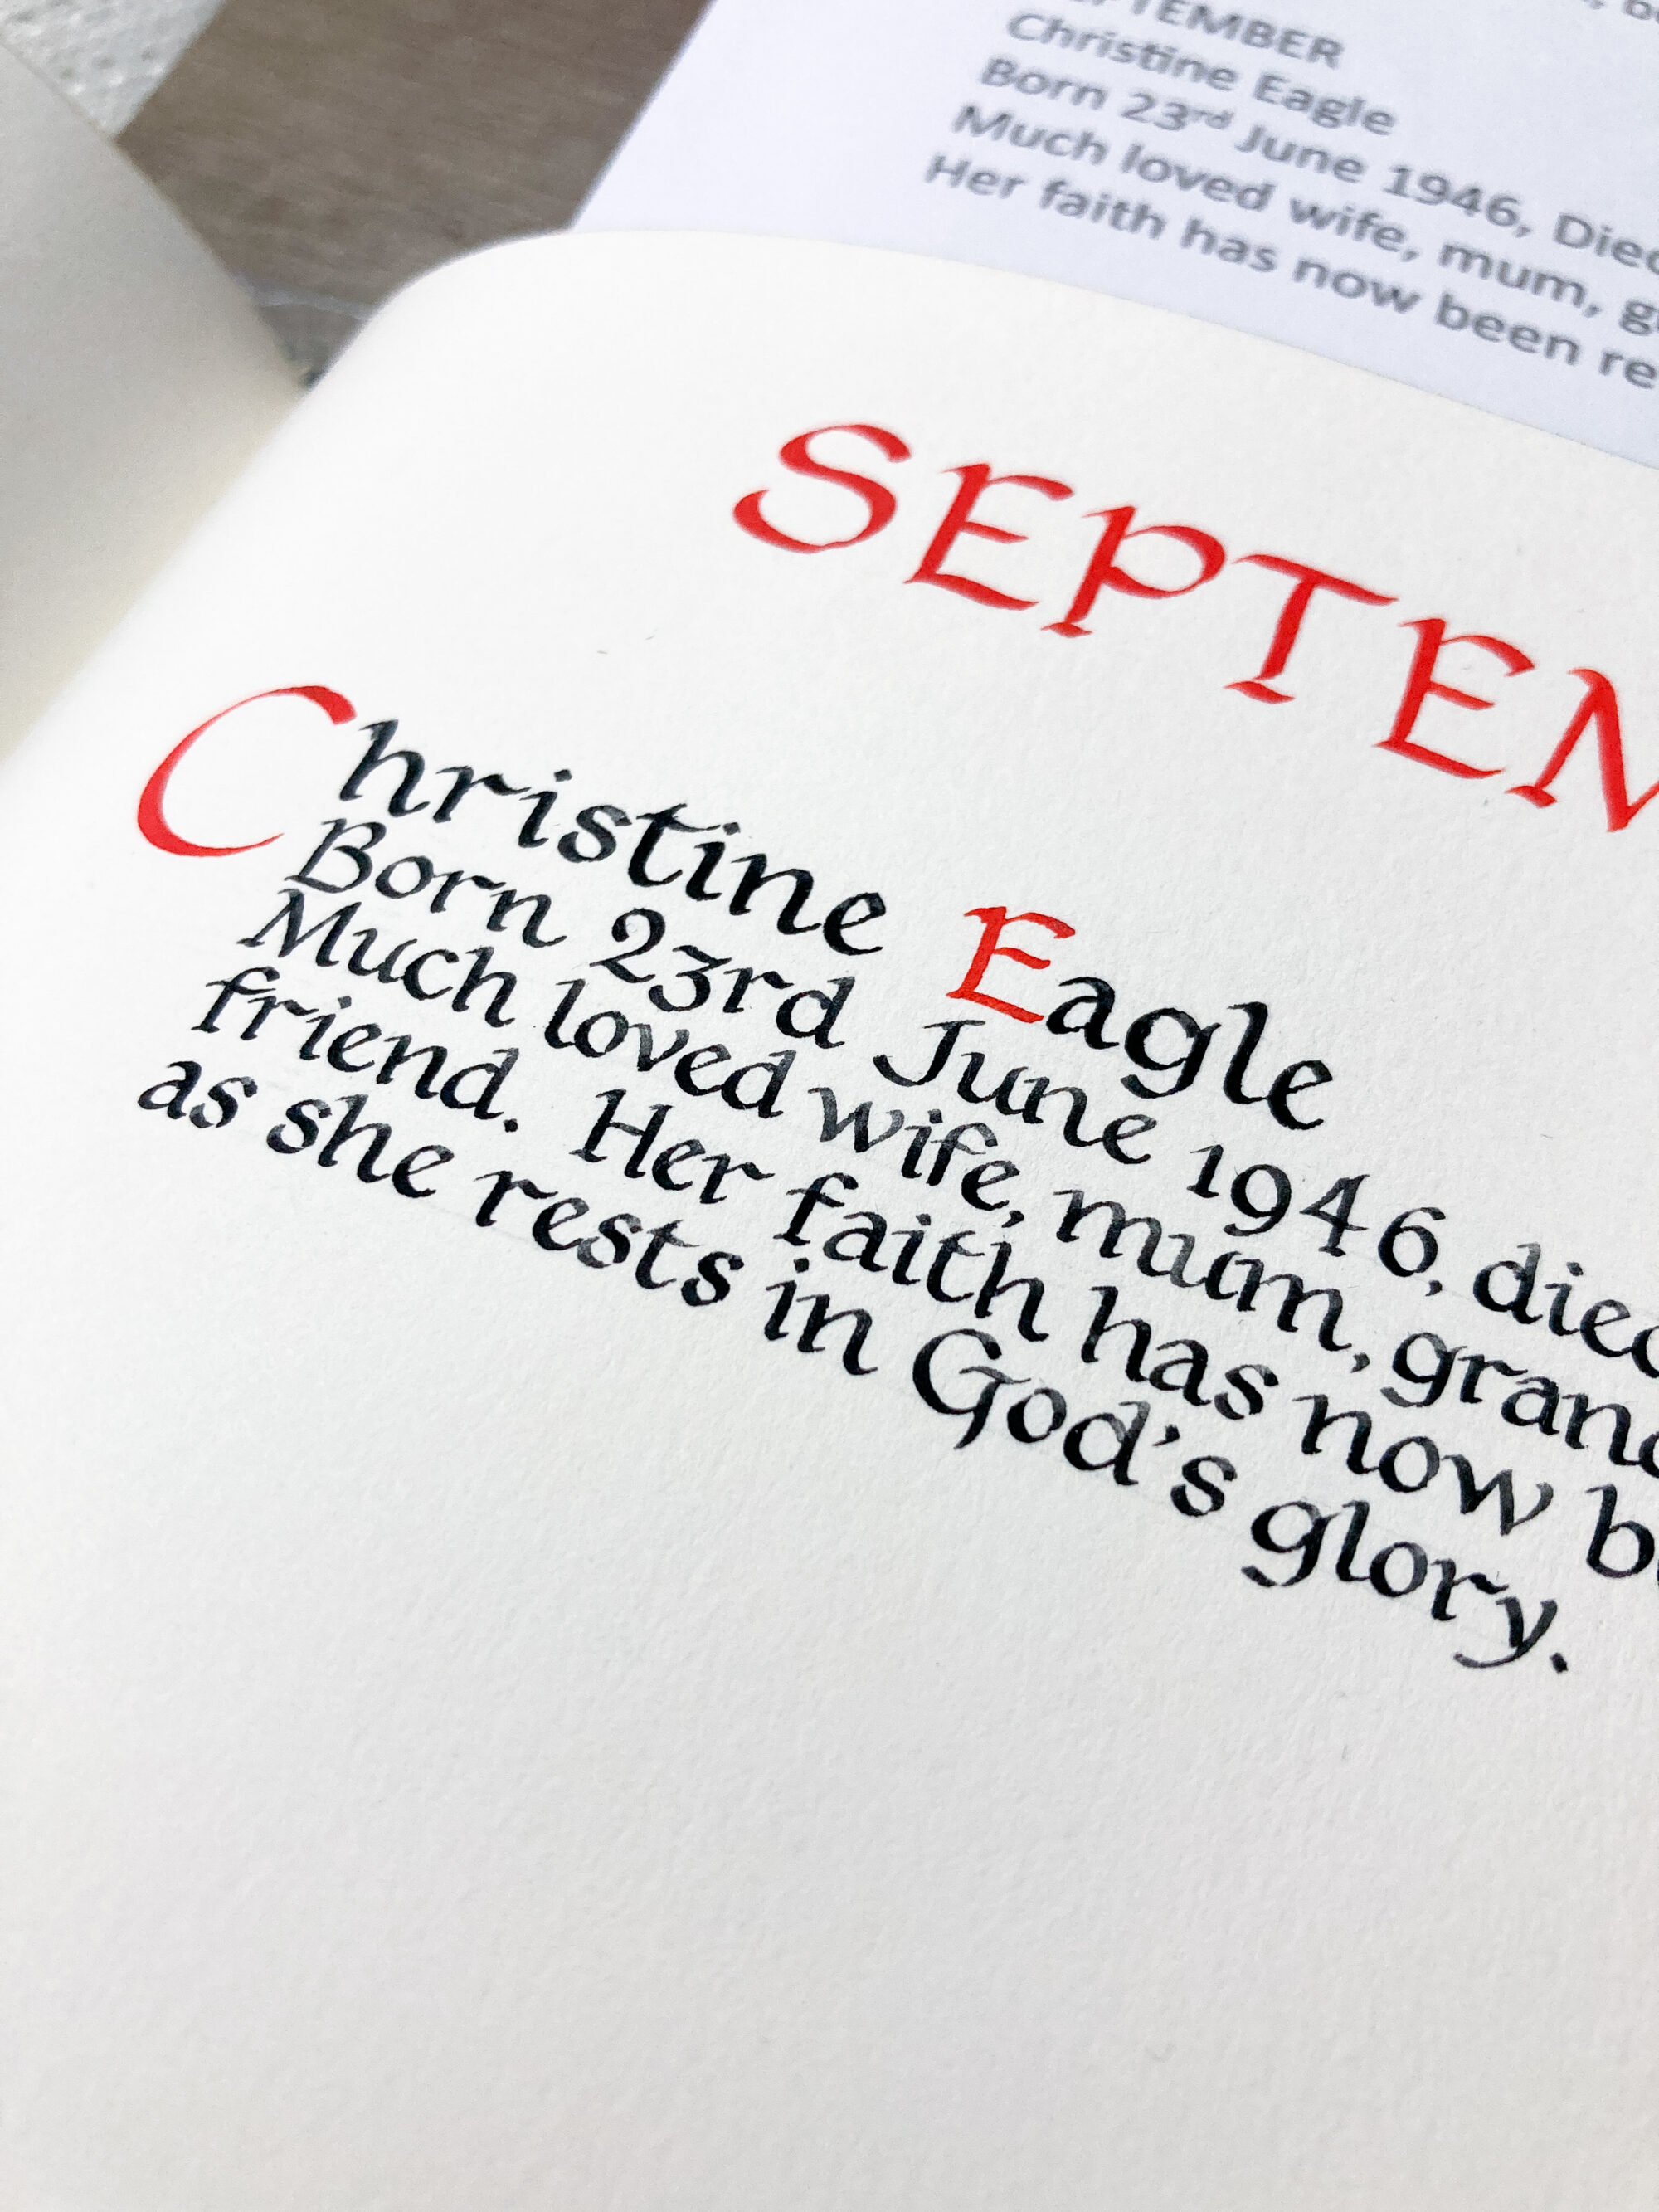 Christine Eagle
Born 23rd June 1946,
Much loved wife, mum,
Her faith has now been
Christine Eagle
Born 23rd June 1946, died
Much loved wife, mum,
friend. Her faith has now
as she rests in God's glory.